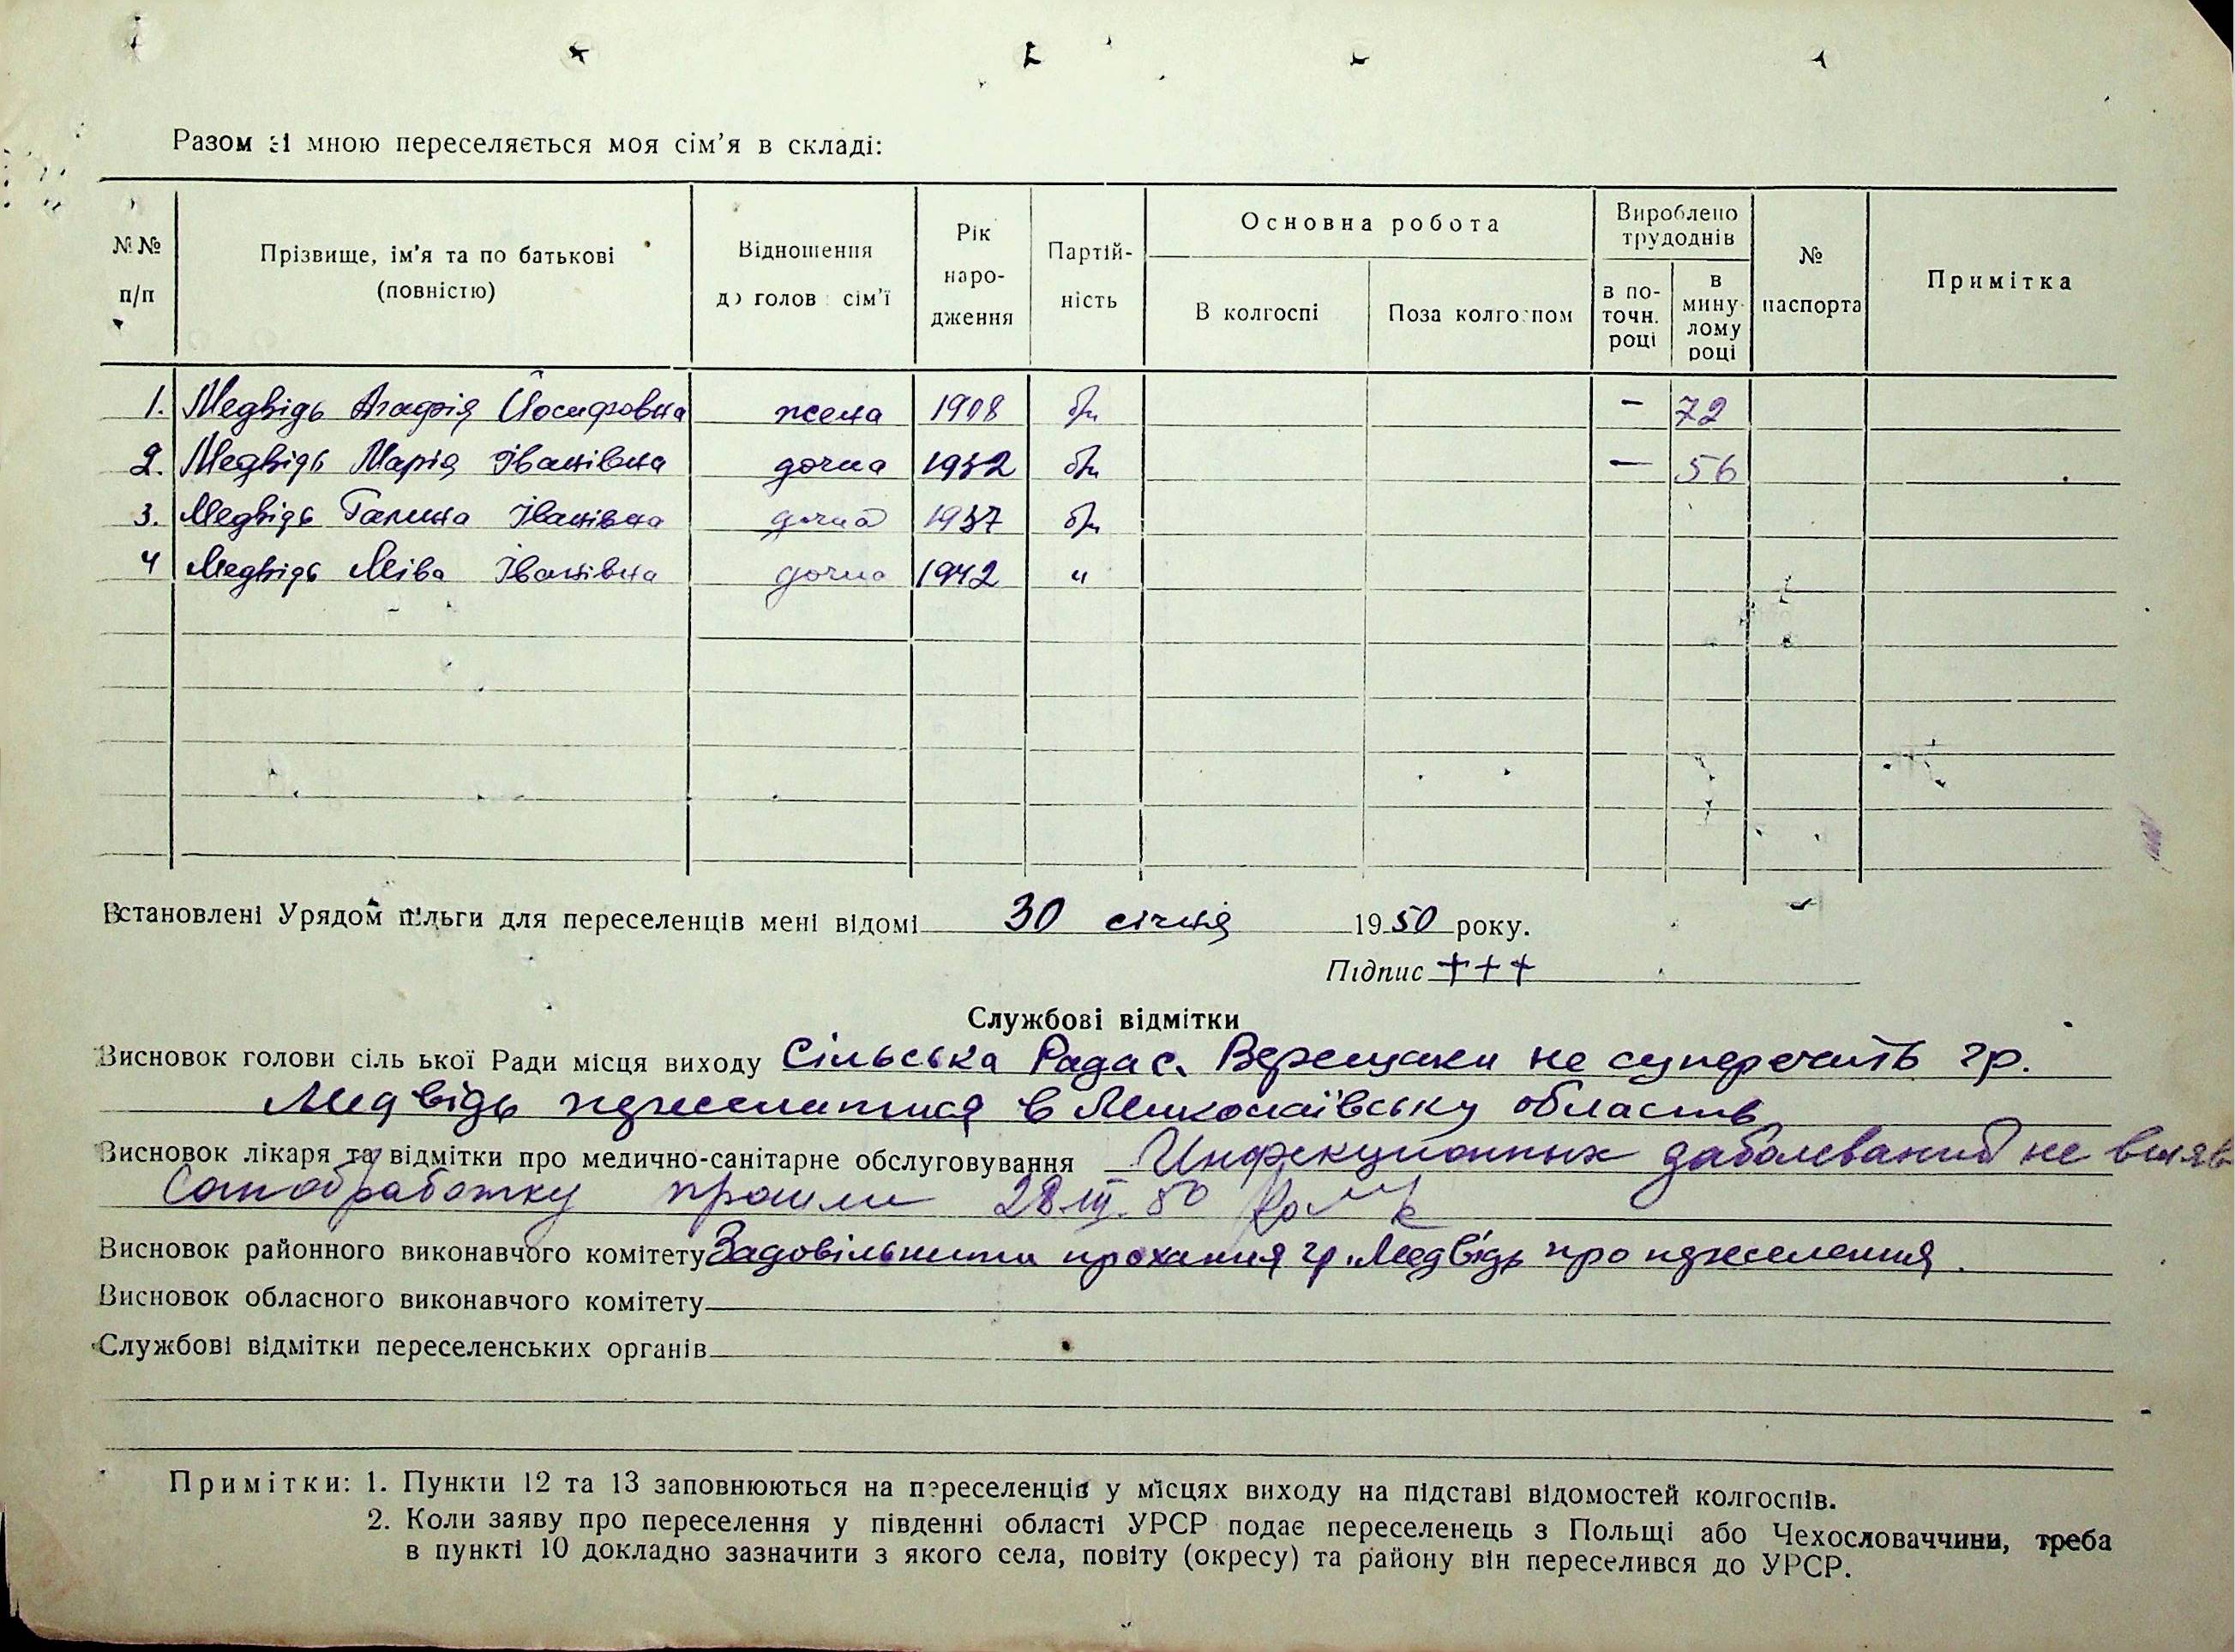 Разом зі мною переселяється моя сім'я в складі:
№№ п/п
Прізвище, ім'я та по батькові (повністю)
Відношення до голови сім'ї
Рік народження
Партійність
Основна робота
В колгоспі
Поза колгоспом
Вироблено трудоднів
в поточн. році
в минулому році
№ паспорта
Примітка
1. Медвідь Агафія Йосифовна жена 1908 б/п — 72
2. Медвідь Марія Іванівна дочка 1932 б/п — 56
3. Медвідь Галина Іванівна дочка 1937 б/п
4 Медвідь Іванівна дочка 1942 "
Встановлені Урядом пільги для переселенців мені відомі 30 січня 1950 року.
Підпис +++
Службові відмітки
Висновок голови сільської Ради місця виходу Сільська Рада с. Верещаки не суперечить гр.
Медвідь переселитися в Миколаївську область
Висновок лікаря та відмітки про медично-санітарне обслуговування Инфекционных заболеваний не выяв
Санобработку прошли 28.III.50
Висновок районного виконавчого комітету Задовільнити прохання гр. Медвідь про переселення.
Висновок обласного виконавчого комітету
Службові відмітки переселенських органів
Примітки: 1. Пункти 12 та 13 заповнюються на переселенців у місцях виходу на підставі відомостей колгоспів.
2. Коли заяву про переселення у південні області УРСР подає переселенець з Польщі або Чехословаччини, треба
в пункті 10 докладно зазначити з якого села, повіту (окресу) та району він переселився до УРСР.